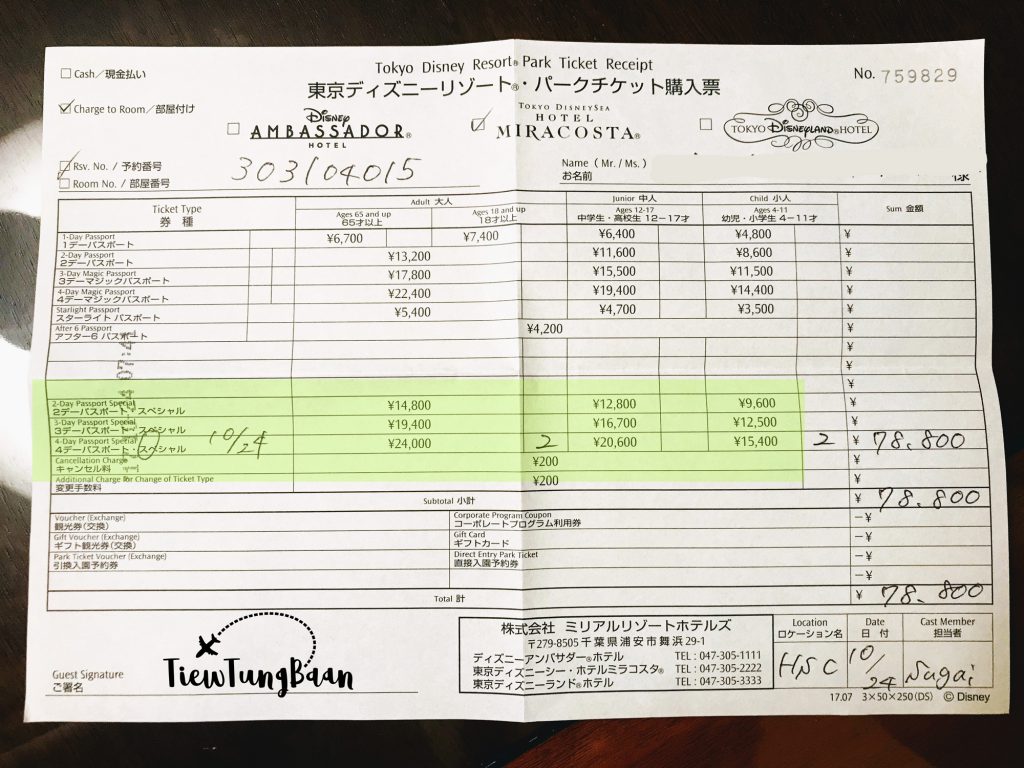 Tokyo Disney Resort® Park Ticket Receipt
東京ディズニーリゾート®・パークチケット購入票
No. 759829
Cash／現金払い
Charge to Room／部屋付け
Disney AMBASSADOR® HOTEL
TOKYO DISNEYSEA HOTEL MIRACOSTA®
TOKYO DISNEYLAND® HOTEL
Rsv. No. / 予約番号 303104015
Room No. / 部屋番号
Name ( Mr. / Ms. )
お名前 様
Ticket Type 券種
Adult 大人
Ages 65 and up 65才以上
Ages 18 and up 18才以上
Junior 中人
Ages 12-17 中学生・高校生 12－17才
Child 小人
Ages 4-11 幼児・小学生 4－11才
Sum 金額
1-Day Passport 1デーパスポート ¥6,700 ¥7,400 ¥6,400 ¥4,800 ¥
2-Day Passport 2デーパスポート ¥13,200 ¥11,600 ¥8,600 ¥
3-Day Magic Passport 3デーマジックパスポート ¥17,800 ¥15,500 ¥11,500 ¥
4-Day Magic Passport 4デーマジックパスポート ¥22,400 ¥19,400 ¥14,400 ¥
Starlight Passport スターライト パスポート ¥5,400 ¥4,700 ¥3,500 ¥
After 6 Passport アフター6 パスポート ¥4,200 ¥
¥
¥
¥
2-Day Passport Special 2デーパスポート・スペシャル ¥14,800 ¥12,800 ¥9,600 ¥
3-Day Passport Special 3デーパスポート・スペシャル ¥19,400 ¥16,700 ¥12,500 ¥
4-Day Passport Special 4デーパスポート・スペシャル 10/24 ¥24,000 2 ¥20,600 ¥15,400 2 ¥ 78.800
Cancellation Charge キャンセル料 ¥200 ¥
Additional Charge for Change of Ticket Type 変更手数料 ¥200 ¥
Subtotal 小計 ¥ 78.800
Voucher (Exchange) 観光券(交換) Corporate Program Coupon コーポレートプログラム利用券 －¥
Gift Voucher (Exchange) ギフト観光券(交換) Gift Card ギフトカード －¥
Park Ticket Voucher (Exchange) 引換入園予約券 Direct Entry Park Ticket 直接入園予約券 －¥
－¥
Total 計 ¥ 78.800
Guest Signature
ご署名
TiewTungBaan
株式会社 ミリアルリゾートホテルズ
〒279-8505 千葉県浦安市舞浜29-1
ディズニーアンバサダー®ホテル TEL : 047-305-1111
東京ディズニーシー・ホテルミラコスタ® TEL : 047-305-2222
東京ディズニーランド®ホテル TEL : 047-305-3333
Location ロケーション名 HSC
Date 日付 10/24
Cast Member 担当者 Sugai
17.07 3×50×250(DS) © Disney